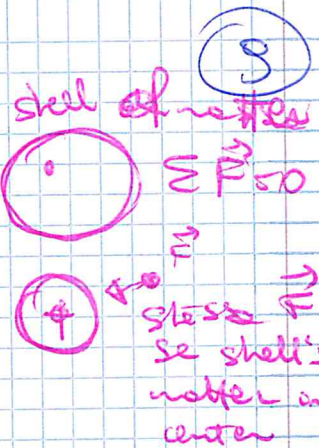 9
shell of matter
Σ F⃗ = 0
F⃗
stessa F⃗
se shell's
matter in
center